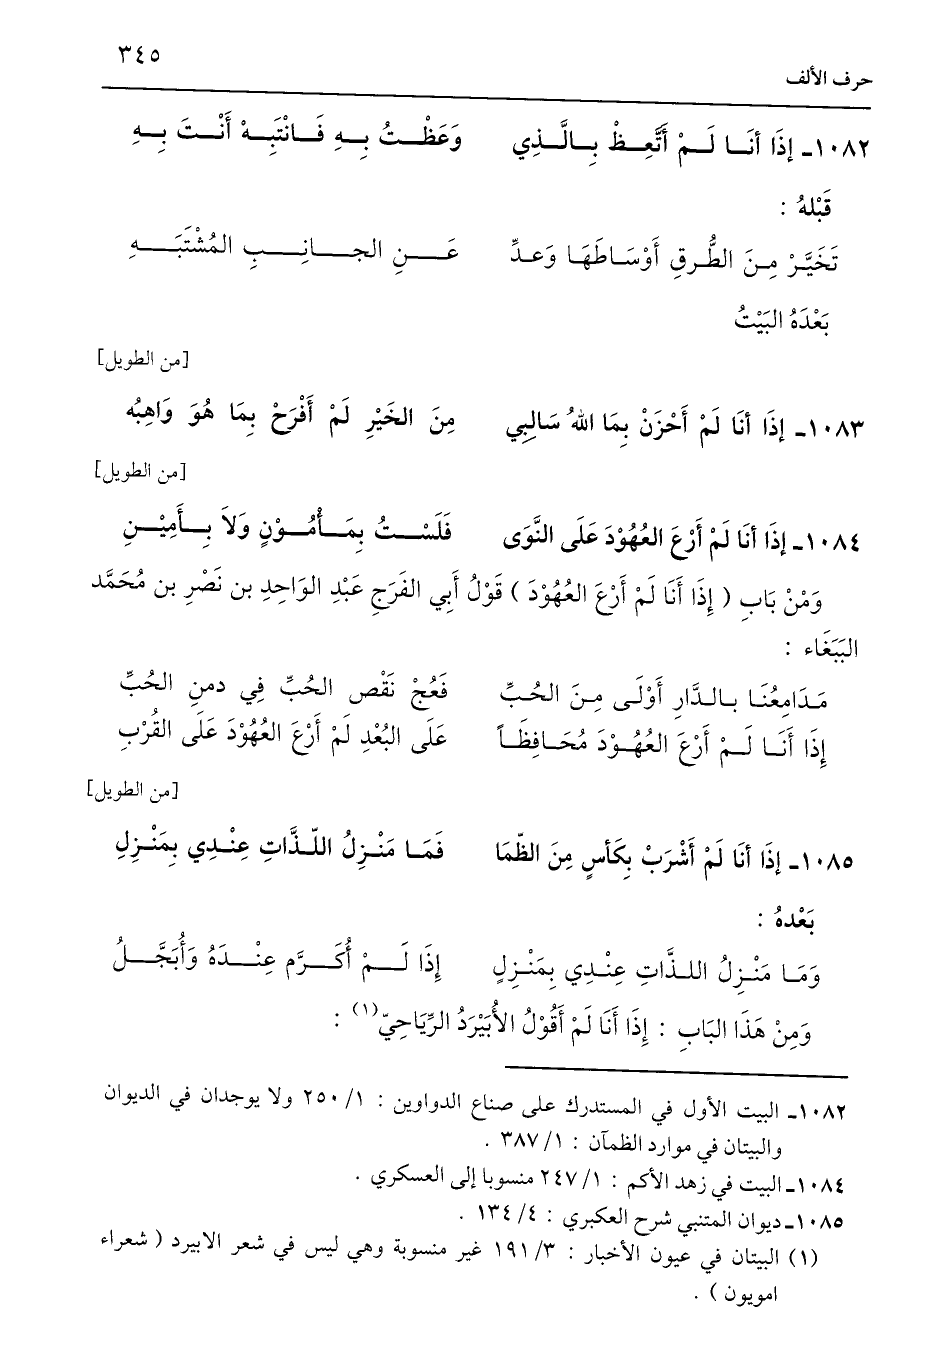 ٣٤٥
حرف الألف
١٠٨٢ـ إذَا أنَــا لَــمْ أَتَّعِــظْ بِــالَّــذِي وَعَظْــتُ بِــهِ فَــانْتَبِــهْ أَنْــتَ بِــهِ
قَبْلهُ :
تَخَيَّرْ مِـنَ الطُّـرقِ أَوْسَـاطَهَـا وَعـدِّ عَــــنِ الجــــانِــــبِ المُشْتَبَــــهِ
بَعْدَهُ البَيْتُ
[من الطويل]
١٠٨٣ـ إِذَا أنَا لَمْ أَحْزَنْ بِمَا اللهُ سَالِبِي مِنَ الخَيْرِ لَمْ أَفْرَحْ بِمَا هُوَ وَاهِبُه
[من الطويل]
١٠٨٤ـ إذَا أنَا لَمْ أَرْعَ العُهُوْدَ عَلَى النَّوَى فَلَسْــتُ بِمَــأْمُــوْنٍ وَلاَ بِــأَمِيْــنِ
وَمْنْ بَابِ ( إِذَا أَنَا لَمْ أَرْعَ العُهُوْدَ ) قَوْلُ أَبِي الفَرَجِ عَبْدِ الوَاحِدِ بن نَصْرِ بن مُحَمَّد
البَبَغَاء :
مَـدَامِعُنَـا بـالـدَّارِ أَوْلَـى مِـنَ الحُـبِّ فَعُجْ نَقْص الحُبِّ فِي دمنِ الحُبِّ
إِذَا أَنَـا لَـمْ أَرْعَ العُهُـوْدَ مُحَـافِظَـاً عَلَى البُعْدِ لَمْ أَرْعَ العُهُوْدَ عَلَى القُرْبِ
[من الطويل]
١٠٨٥ـ إِذَا أنَا لَمْ أَشْرَبْ بِكَأسٍ مِنَ الظّمَا فَمَـا مَنْـزِلُ اللّـذَّاتِ عِنْـدِي بِمَنْـزِلِ
بَعْدهُ :
وَمَـا مَنْـزِلُ اللـذَّاتِ عِنْـدِي بِمَنْـزِلٍ إِذَا لَــمْ أُكَــرَّم عِنْــدَهُ وَأُبَجَّــلُ
وَمِنْ هَذَا البَابِ : إِذَا أَنَا لَمْ أَقُوْلُ الأُبَيْرَدُ الرِّيَاحِيّ(١) :
١٠٨٢ـ البيت الأول في المستدرك على صناع الدواوين : ١/ ٢٥٠ ولا يوجدان في الديوان
والبيتان في موارد الظمآن : ١/ ٣٨٧ .
١٠٨٤ـ البيت في زهد الأكم : ١/ ٢٤٧ منسوبا إلى العسكري .
١٠٨٥ـ ديوان المتنبي شرح العكبري : ٤/ ١٣٤ .
(١) البيتان في عيون الأخبار : ٣/ ١٩١ غير منسوبة وهي ليس في شعر الابيرد ( شعراء
امويون ) .